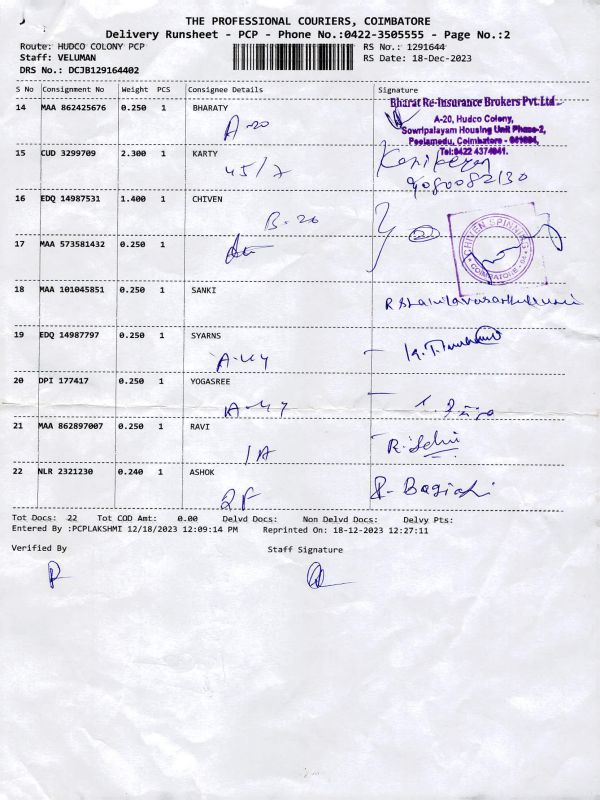 THE PROFESSIONAL COURIERS, COIMBATORE
Delivery Runsheet - PCP - Phone No.:0422-3505555 - Page No.:2
Route: HUDCO COLONY PCP
RS No.: 1291644
Staff: VELUMAN
RS Date: 18-Dec-2023
DRS No.: DCJB129164402
S No Consignment No Weight PCS Consignee Details Signature
14 MAA 862425676 0.250 1 BHARATY
A-20
Bharat Re-Insurance Brokers Pvt.Ltd.
A-20, Hudco Colony,
Sowripalayam Housing Unit Phase-2,
Peelamedu, Coimbatore - 641004,
Tel:0422 4374041.
15 CUD 3299709 2.300 1 KARTY
45/7
9080082130
16 EDQ 14987531 1.400 1 CHIVEN
B-20
CHIVEN SPINNING
COIMBATORE
17 MAA 573581432 0.250 1
18 MAA 101045851 0.250 1 SANKI
19 EDQ 14987797 0.250 1 SYARNS
A-44
20 DPI 177417 0.250 1 YOGASREE
A-47
21 MAA 862897007 0.250 1 RAVI
1A
R.
22 NLR 2321230 0.240 1 ASHOK
2F
Tot Docs: 22 Tot COD Amt: 0.00 Delvd Docs: Non Delvd Docs: Delvy Pts:
Entered By :PCPLAKSHMI 12/18/2023 12:09:14 PM Reprinted On: 18-12-2023 12:27:11
Verified By Staff Signature